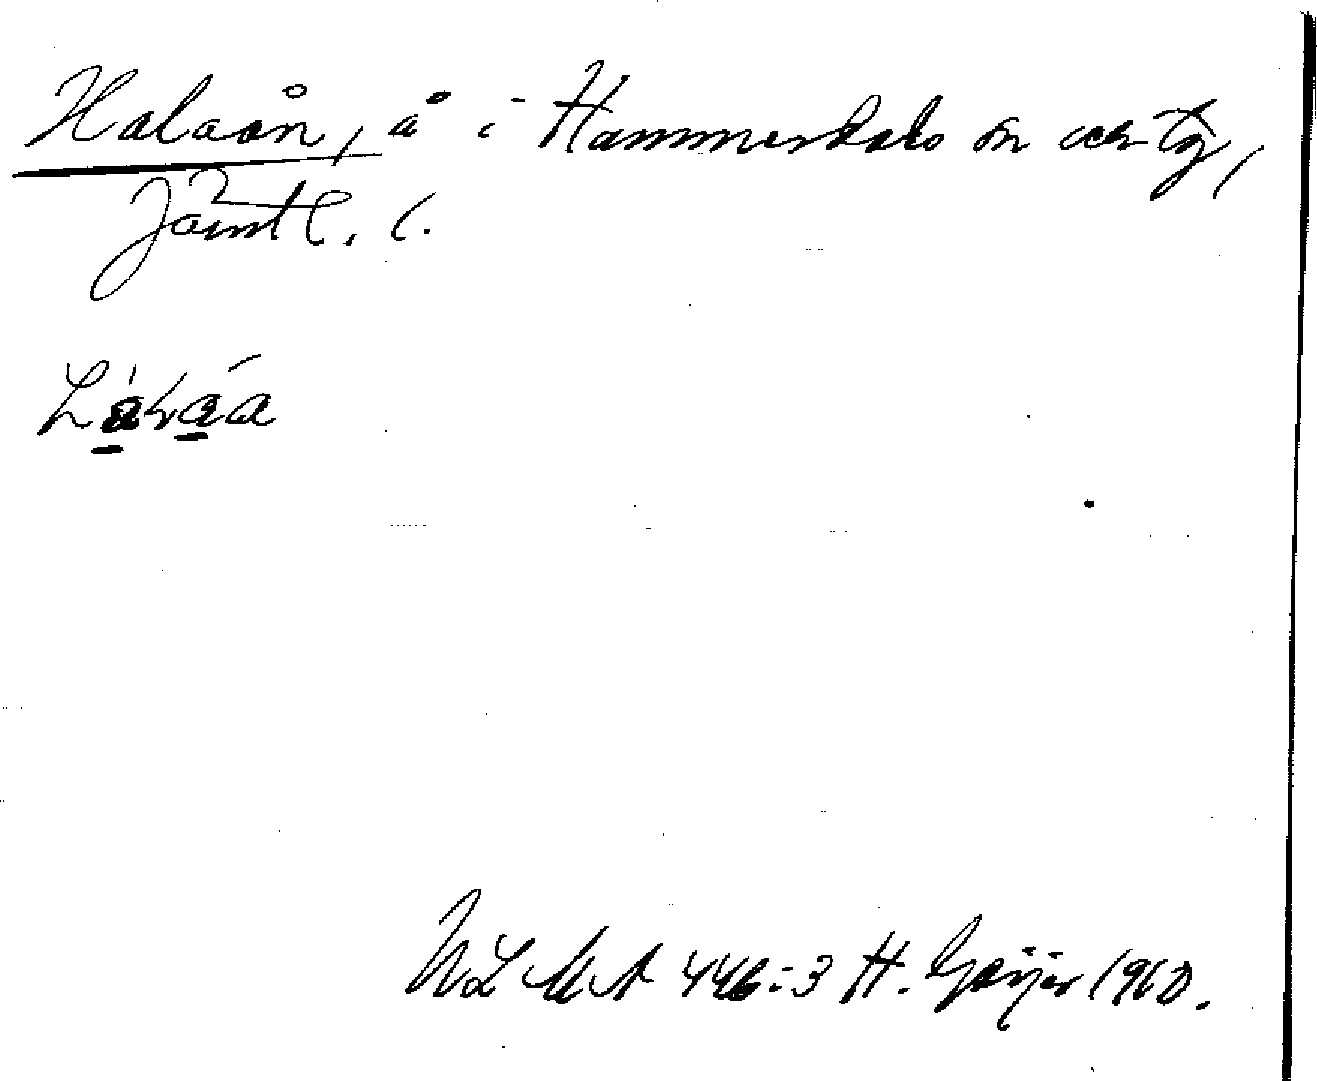 Halaån, å i Hammerdals sn och tg,
Jämtl. l.
ULMA 446:3 H. Geijer 1910.